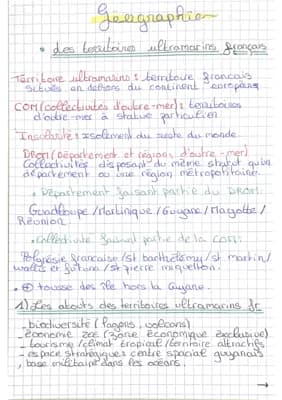 Géographie
• Les territoires ultramarins français
Territoire ultramarins : territoire français
situés en dehors du continent européens
COM (collectivités d'outre-mer) : territoires
d'outre-mer à statue particulier
Insularité : isolement du reste du monde.
DROM (Département et région d'outre-mer)
Collectivités disposant du même statut qu'un
département ou une région métropolitaine.
• Département faisant partie du DROM:
Guadeloupe / Martinique / Guyane / Mayotte /
Réunion.
• Collectivité faisant partie de la COM:
Polynésie française / st barthélémy / st martin /
wallis et futuna / st pierre miquelon.
• ⊕ tousse des île hors la Guyane.
1) Les atouts des territoires ultramarins fr
- biodiversité (lagons, volcans)
- économie ZEE (zone économique exclusive)
- tourisme / climat tropical / territoire attractifs
- espace stratégiques centre spacial guyanais
, base militaire dans les océans.
→